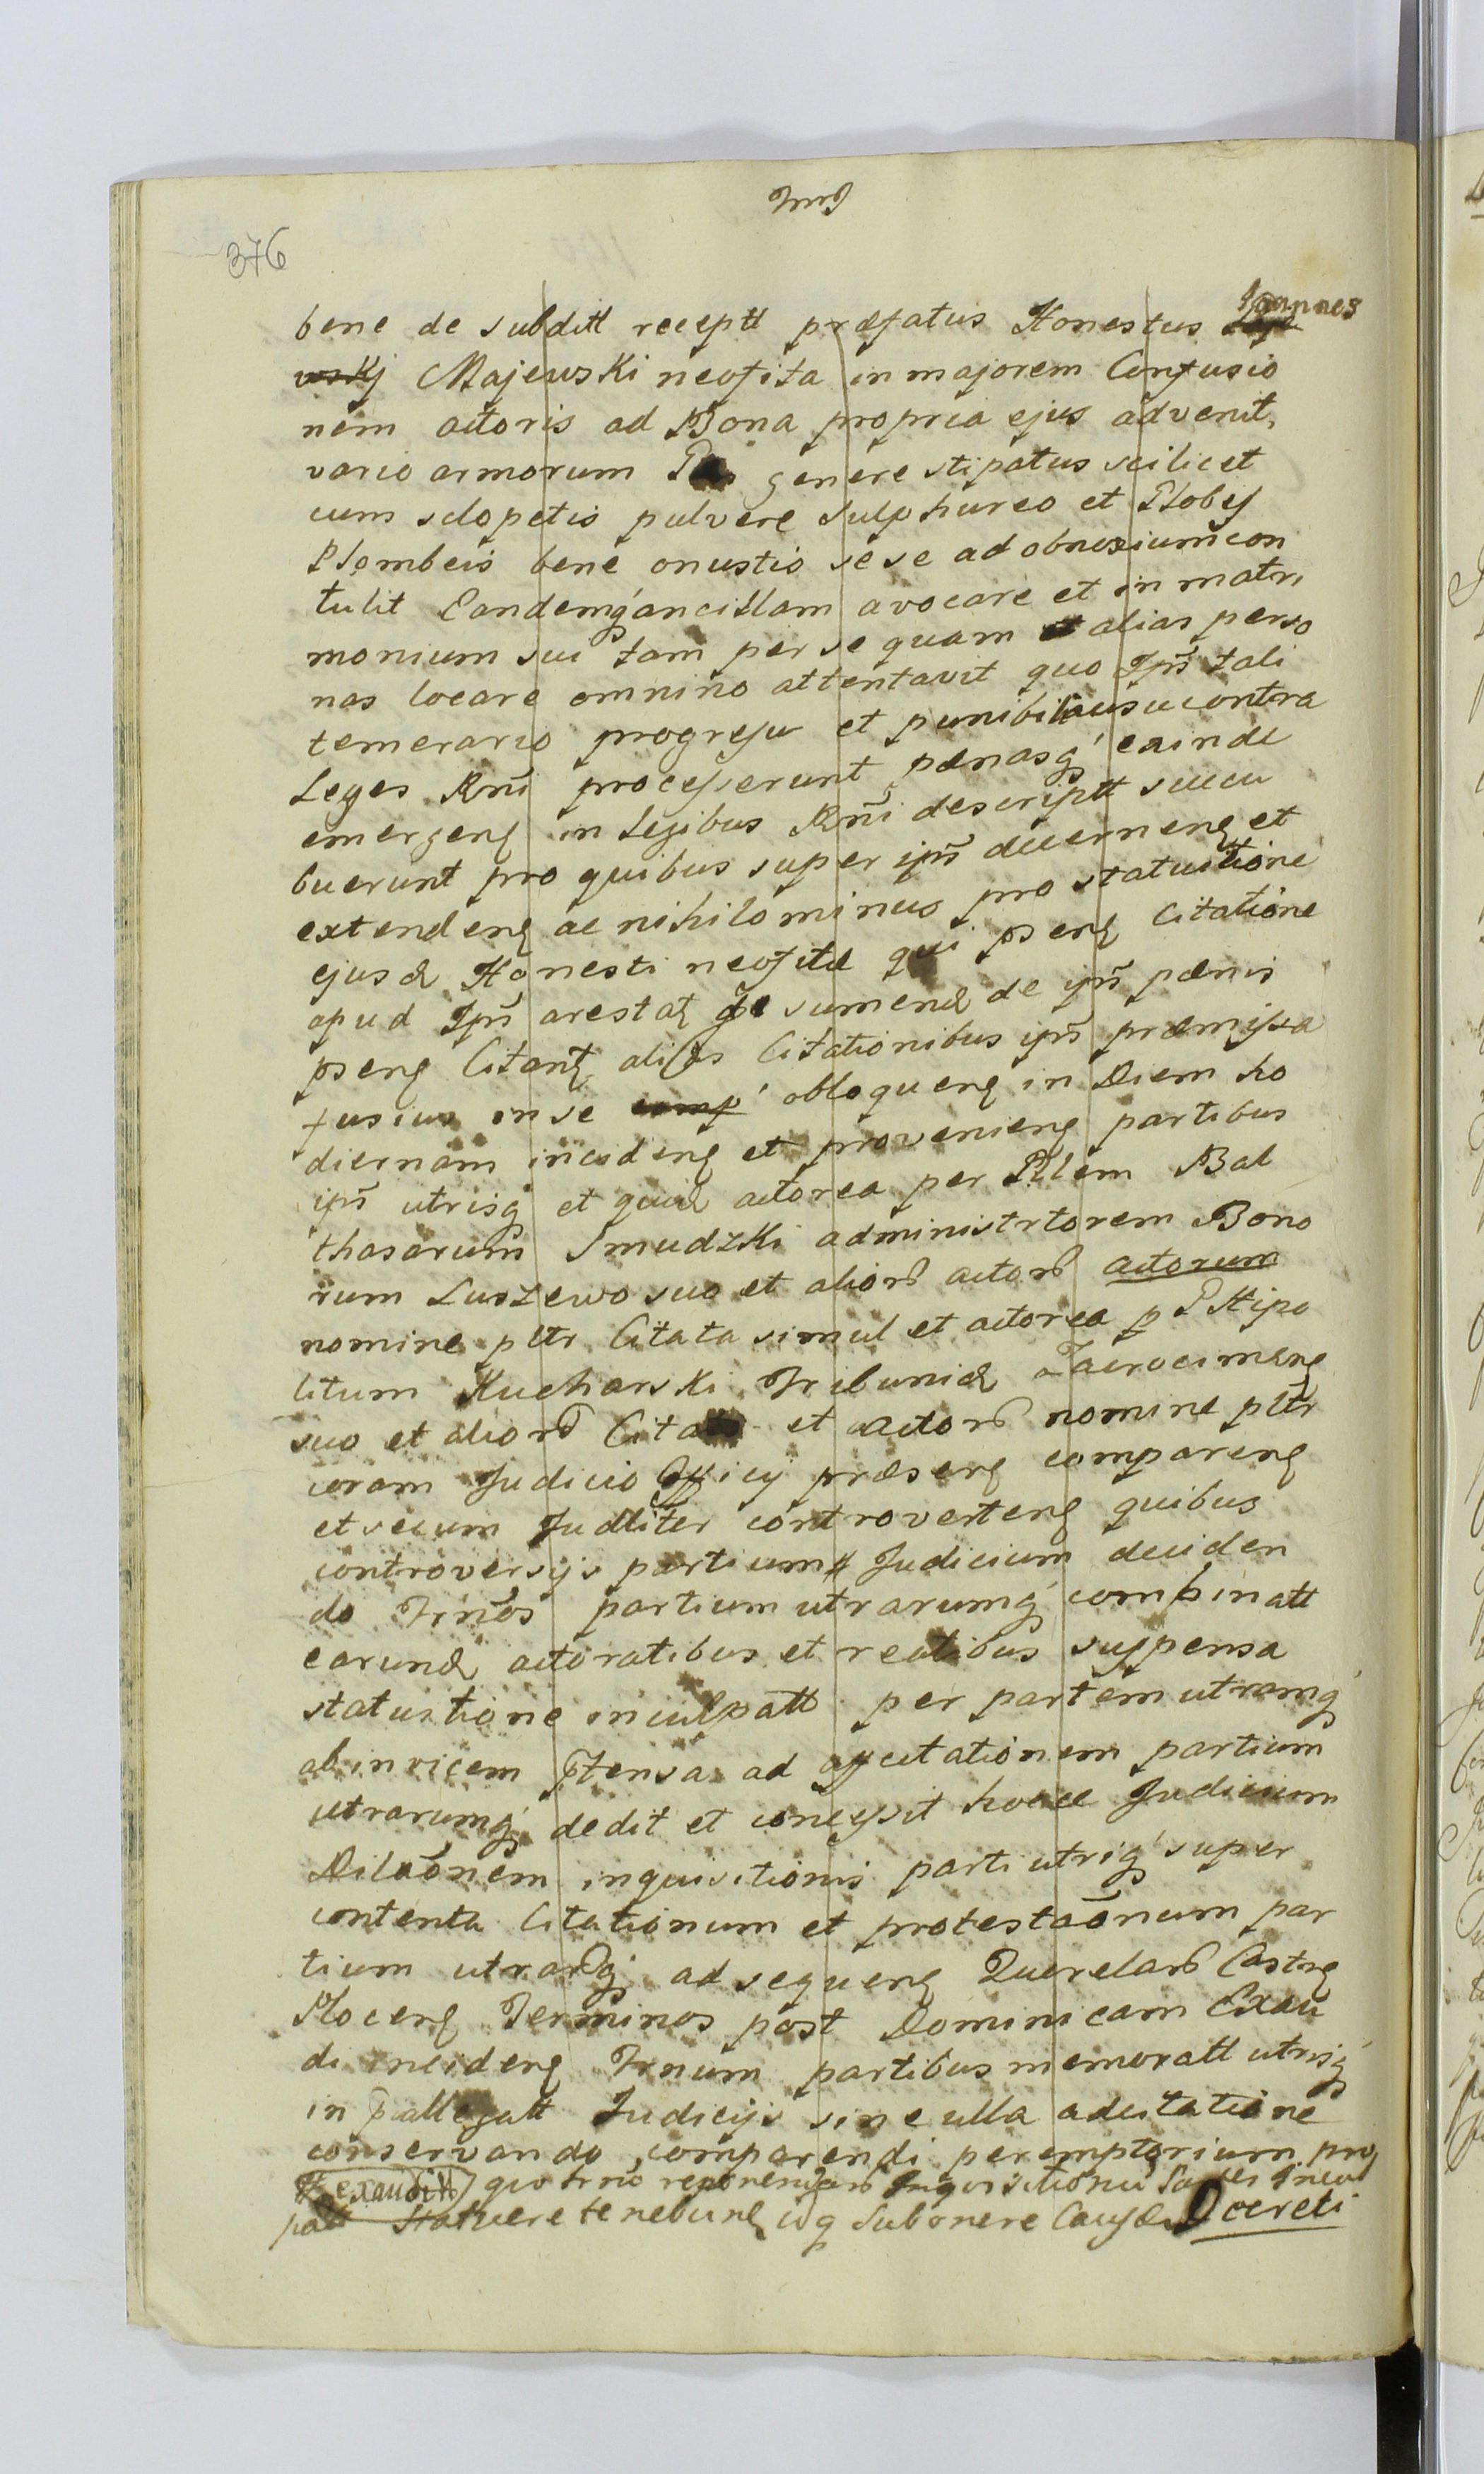 376
bene de subditt receptt præfatus Honestus Joannes
wskj Majewski neofita in majorem Confusio
nem actoris ad Bona propria ejus advenit,
vario armorum genere stipatus scilicet
cum sclopetis pulvere sulphureo et Globej
Plombeis bene onustis sese ad obnoxium con
tulit Eandemq́ ancillam avocare et in matri
monium sui tam per se quam et alias perso
nas locare omnino attentavit quo Ipñ tali
temerario progressu et punibili ausu contra
Leges Rñi processerunt pænasq́ exinde
emergenȩ in Legibus Rñi descriptt succu
buerunt pro quibus super ipñ decernenȩ et
extendenȩ ac nihilominus pro statuitione
ejusd Honesti neofitæ qui psenȩ Citatione
apud Ipñ arestaȩ sumend de ipñ pænis
psenȩ Citanȩ alijs Citationibus ipñ præmissa
fusius in se comp obloquenȩ in Diem ho
diernam incidenȩ et provenienȩ partibus
ipñ utrisq et quid actorea per Pilem Bal
thasarum Smudzki administrtorem Bono
rum Luszewo suo et alior actor actorum
nomine pltr Citata simul et actorea p P Hipo
litum Kucharski Tribunid Zacrocimenȩ
suo et alior Citato et actor nomine pltr
coram Judicio Officij præsenȩ comparenȩ
et secum Judlliter controvertenȩ quibus
controversijs partium # Judicium deciden
do Trños partium utrarumq́ combinatt
earund actoratibus et reatibus suspensa
statuitione inculpatt per partem utramq́
ab invicem ptensa ad affectationem partium
utrarumq́ dedit et concessit hocce Judicium
Dilaõnem inquisitionis parti utriq́ super
contenta Citationum et protestaõnum par
tium utrarq́ ad sequenȩ Querelar Castrȩ
Plocenȩ Terminos post Dominicam Exau
di incidenȩ Trnum partibus memoratt utrisq́
in pallegatt Judicijs sine ulla adcitatione
conservando comparendi peremptorium pro
# exauditt quo trno reponendar Inquisitionu Partes Incul
patt statuere tenebunȩ isq Subonere Causæ Decreti